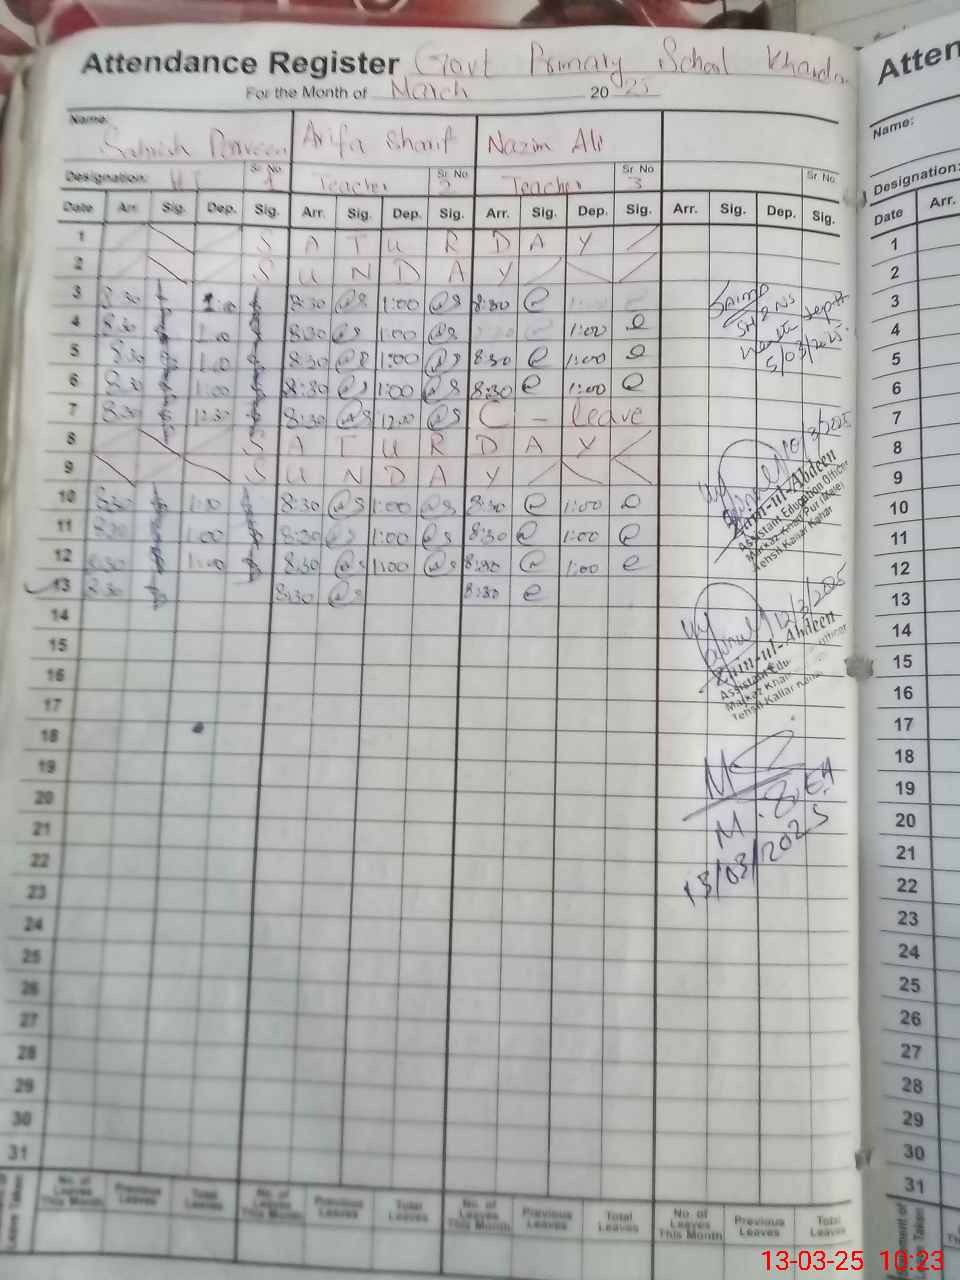 Attendance Register Govt Primary School
For the Month of March 2025
Name: Parveen Arifa Sharif Nazim Ali
Designation: Sr. No 1 Teacher Sr. No 2 Teacher Sr. No 3 Sr. No
Date Arr. Sig. Dep. Sig. Arr. Sig. Dep. Sig. Arr. Sig. Dep. Sig. Arr. Sig. Dep. Sig.
1 S A T U R D A Y
2 S U N D A Y
3 8:30 1:00 8:30 1:00 8:30
4 8:30 1:00 8:30 1:00 1:00
5 8:30 1:00 8:30 1:00 8:30 1:00
6 8:30 1:00 8:30 1:00 8:30 1:00
7 8:30 12:30 8:30 12:00 C - leave
8 S A T U R D A Y
9 S U N D A Y
10 8:30 1:00 8:30 1:00 8:30 1:00
11 8:30 1:00 8:30 1:00 8:30 1:00
12 8:30 1:00 8:30 1:00 8:30 1:00
13 8:30 8:30 8:30
14
15
16
17
18
19
20
21
22
23
24
25
26
27
28
29
30
31
No. of Leaves This Month Previous Leaves Total Leaves No. of Leaves This Month Previous Leaves Total Leaves No. of Leaves This Month Previous Leaves Total Leaves No. of Leaves This Month Previous Leaves Total Leaves
Saima
SH&NS
Health Deptt
5/03/2025
10/3/2025
Zain-ul-Abdeen
Assistant Education Officer
Markaz Khan Pur (Male)
Tehsil Kallar Kahar
12/3/2025
Zain-ul-Abdeen
Assistant
Markaz
Tehsil Kallar
13/03/2025
Atten
Name:
Designation:
Date Arr.
1
2
3
4
5
6
7
8
9
10
11
12
13
14
15
16
17
18
19
20
21
22
23
24
25
26
27
28
29
30
31
13-03-25 10:23